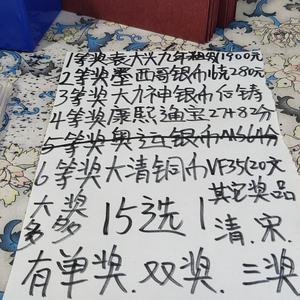 1等奖袁大头九年秬幼1900元
2等奖墨西哥银币晓280元
3等奖大力神银币仿铸
4等奖康熙通宝27482分
5等奖奥运银币MS64分
6等奖大清铜币VF35(20文
大奖 其它奖品
多多 15选1 清.宋.
有单奖.双奖.三奖